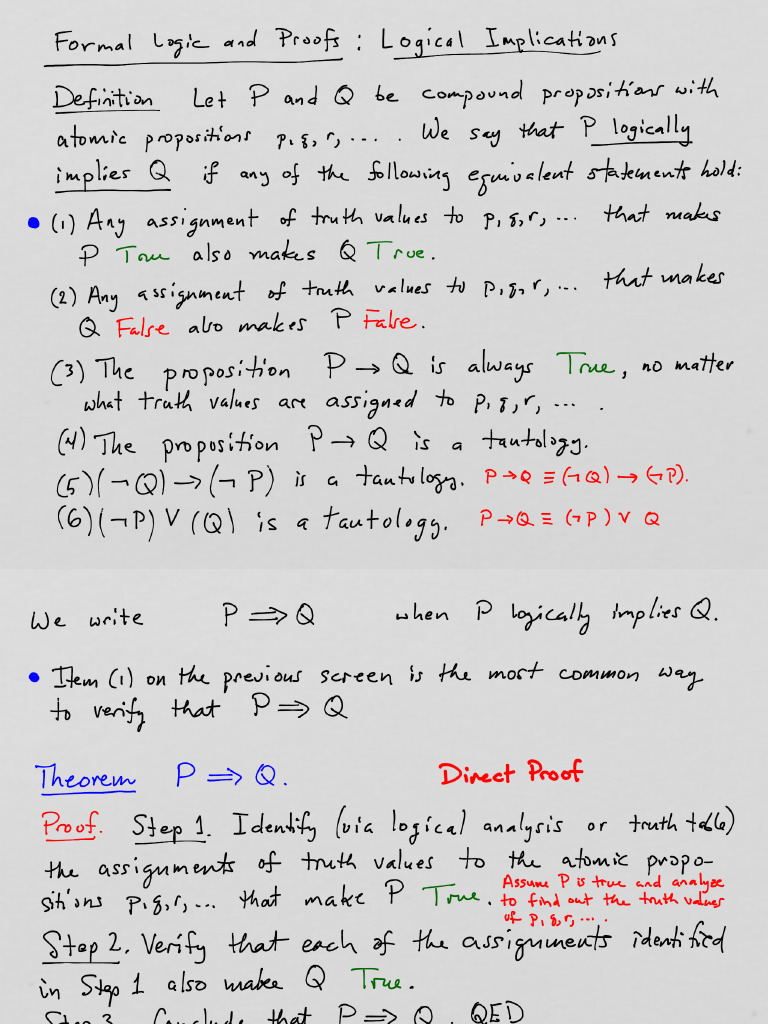 Formal Logic and Proofs : Logical Implications
Definition Let P and Q be compound propositions with
atomic propositions p, q, r, .... . We say that P logically
implies Q if any of the following equivalent statements hold:
• (1) Any assignment of truth values to p, q, r, ... that makes
P True also makes Q True.
(2) Any assignment of truth values to p, q, r, ... that makes
Q False also makes P False.
(3) The proposition P → Q is always True, no matter
what truth values are assigned to p, q, r, ... .
(4) The proposition P → Q is a tautology.
(5) (¬Q) → (¬P) is a tautology. P → Q ≡ (¬Q) → (¬P).
(6) (¬P) ∨ (Q) is a tautology. P → Q ≡ (¬P) ∨ Q
We write P ⟹ Q when P logically implies Q.
• Item (1) on the previous screen is the most common way
to verify that P ⟹ Q
Theorem P ⟹ Q. Direct Proof
Proof. Step 1. Identify (via logical analysis or truth table)
the assignments of truth values to the atomic propo-
sitions p, q, r, ... that make P True. Assume P is true and analyze
to find out the truth values
of p, q, r, ... .
Step 2. Verify that each of the assignments identified
in Step 1 also make Q True.
Step 3. Conclude that P ⟹ Q. QED